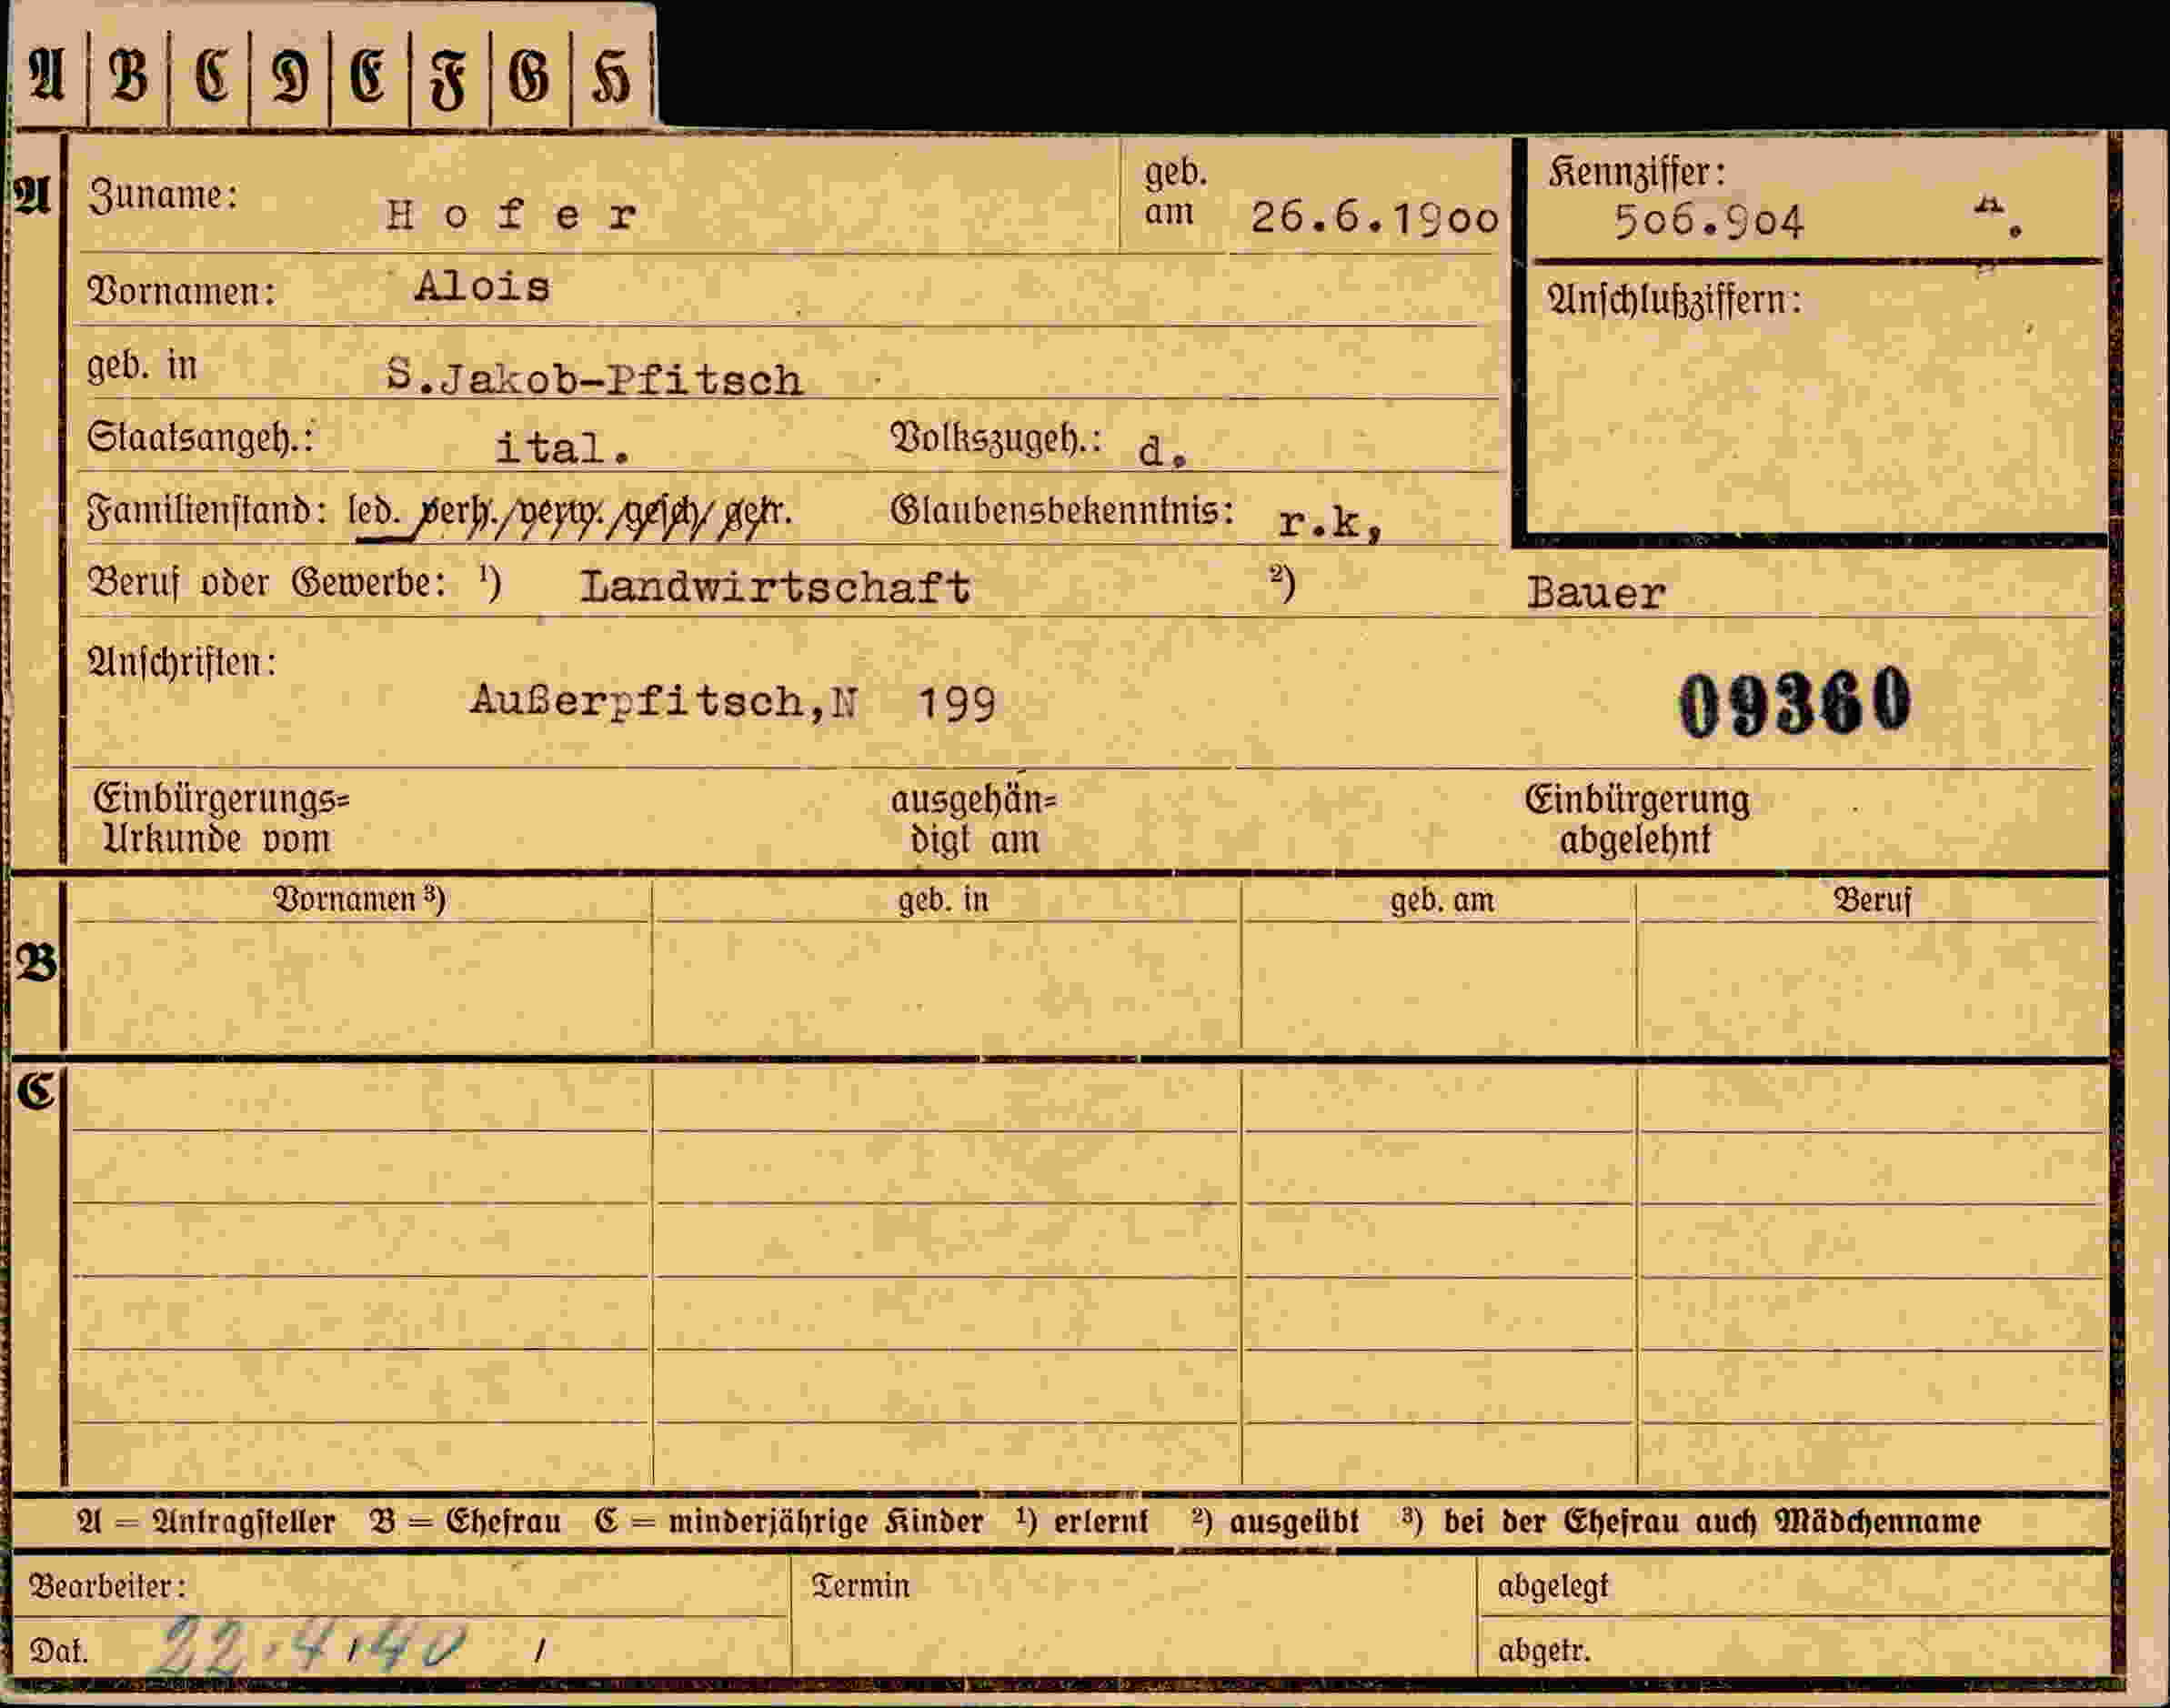 A B C D E F G H
A Zuname: Hofer geb. am 26.6.1900 Kennziffer: 506.904
Vornamen: Alois Anschlußziffern:
geb. in S.Jakob-Pfitsch
Staatsangeh.: ital. Volkszugeh.: d.
Familienstand: led. verh./verw./gesch/getr. Glaubensbekenntnis: r.k,
Beruf oder Gewerbe: ¹) Landwirtschaft ²) Bauer
Anschriften:
Außerpfitsch,N 199 09360
Einbürgerungs= ausgehän= Einbürgerung
Urkunde vom digt am abgelehnt
Vornamen ³) geb. in geb. am Beruf
B
C
A = Antragsteller B = Ehefrau C = minderjährige Kinder ¹) erlernt ²) ausgeübt ³) bei der Ehefrau auch Mädchenname
Bearbeiter: Termin abgelegt
Dat. 22.4.40 / abgetr.